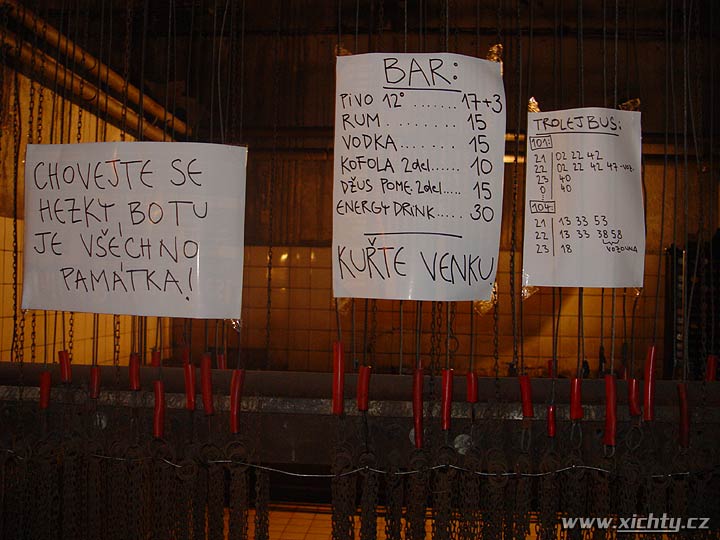 CHOVEJTE SE
HEZKY, BO TU
JE VŠECHNO
PAMÁTKA!
BAR:
PIVO 12° ....... 17+3
RUM ........... 15
VODKA ......... 15
KOFOLA 2del..... 10
DŽUS POME. 2del..... 15
ENERGY DRINK..... 30
KUŘTE VENKU
TROLEJBUS:
101:
21 02 22 42
22 02 22 42 47-VOZ.
23 40
0 40
104:
21 13 33 53
22 13 33 38 58
23 18 VOZOVNA
www.xichty.cz